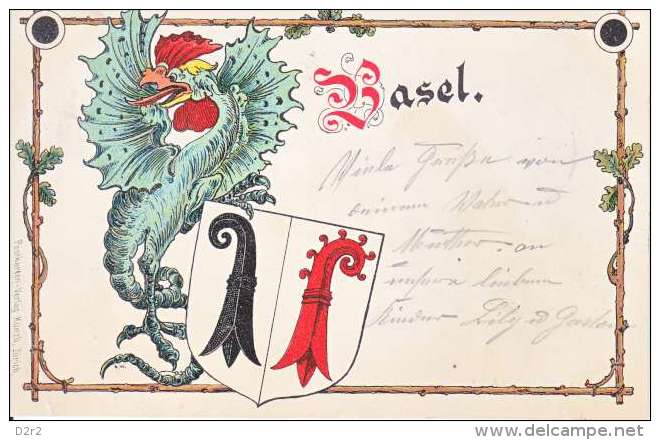 Basel.
Viele Grüße von
Vater u
Mutter an
unsere lieben
Kinder Lily u
Postkarten-Verlag Künzli, Zürich
D2r2
delcampe.net